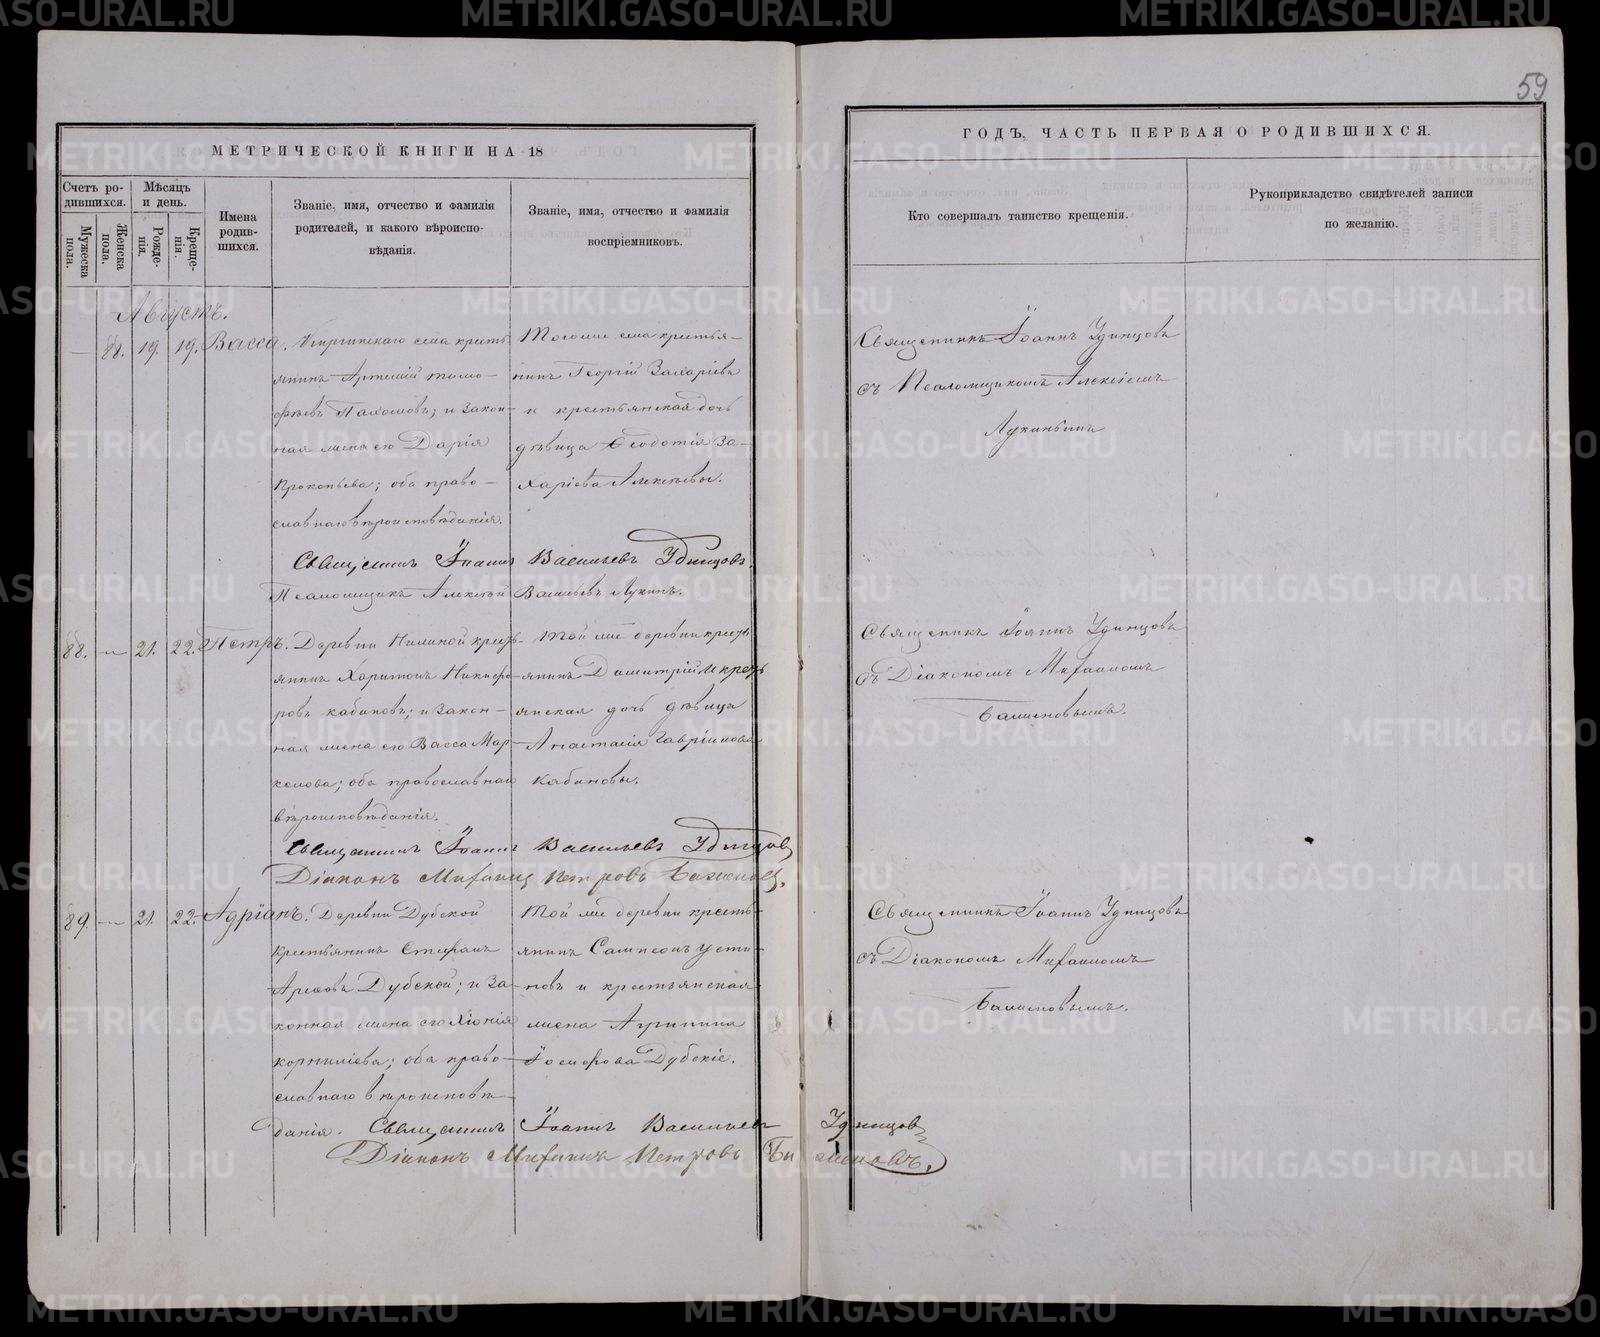 59
МЕТРИЧЕСКОЙ КНИГИ НА 18
ГОДЪ, ЧАСТЬ ПЕРВАЯ О РОДИВШИХСЯ.
Счетъ ро-
дившихся.
Мужеска
пола.
Женска
пола.
Мѣсяцъ
и день.
Рожде-
нія.
Креще-
нія.
Имена
родив-
шихся.
Званіе, имя, отчество и фамилія
родителей, и какого вѣроиспо-
вѣданія.
Званіе, имя, отчество и фамилія
воспріемниковъ.
Кто совершалъ таинство крещенія.
Рукоприкладство свидѣтелей записи
по желанію.
Августъ.
— 88. 19. 19. Васса.
села кресть
янинъ Артемій тимо-
фѣевъ Пахомовъ; и закон-
ная жена его Дарія
Прокопьева; оба право-
славнаго вѣроисповѣданія.
Тогоже села кресть-
нинъ Георгій Захаріевъ
и крестьянская дочь
дѣвица За-
харіева Алексѣевы.
Священникъ Іоаннъ Удинцовъ
съ Псаломщикомъ Алексіемъ
Лукинымъ
Священникъ Іоаннъ Васильевъ Удинцовъ.
Псаломщикъ Алексѣй Васильевъ Лукинъ.
88. — 21. 22. Петръ.
Деревни кресть-
янинъ Харитонъ Никифо-
ровъ кабановъ; и закон-
ная жена его Васса Мар-
келова; оба православнаго
вѣроисповѣданія.
Той же деревни кресть
янинъ Димитрій и кресть
янская дочь дѣвица
Анастасія Гавріилова
Кабановы.
Священникъ Іоаннъ Удинцовъ
съ Діакономъ Михаиломъ
Баженовымъ.
Священникъ Іоаннъ Васильевъ Удинцовъ
Діаконъ Михаилъ Петровъ Баженовъ.
89. — 21. 22. Адріанъ.
Деревни Дубской
крестьянинъ Стефанъ
Дубской; и за-
конная жена его Хіонія
корниліева; оба право-
славнаго вѣроисповѣ-
данія.
Той же деревни кресть-
янинъ Сампсонъ усти-
новъ и крестьянская
жена Агрипина
Іосифова Дубскіе.
Священникъ Іоаннъ Удинцовъ
съ Діакономъ Михаиломъ
Баженовымъ.
Священникъ Іоаннъ Васильевъ Удинцовъ
Діаконъ Михаилъ Петровъ Баженовъ.
METRIKI.GASO-URAL.RU